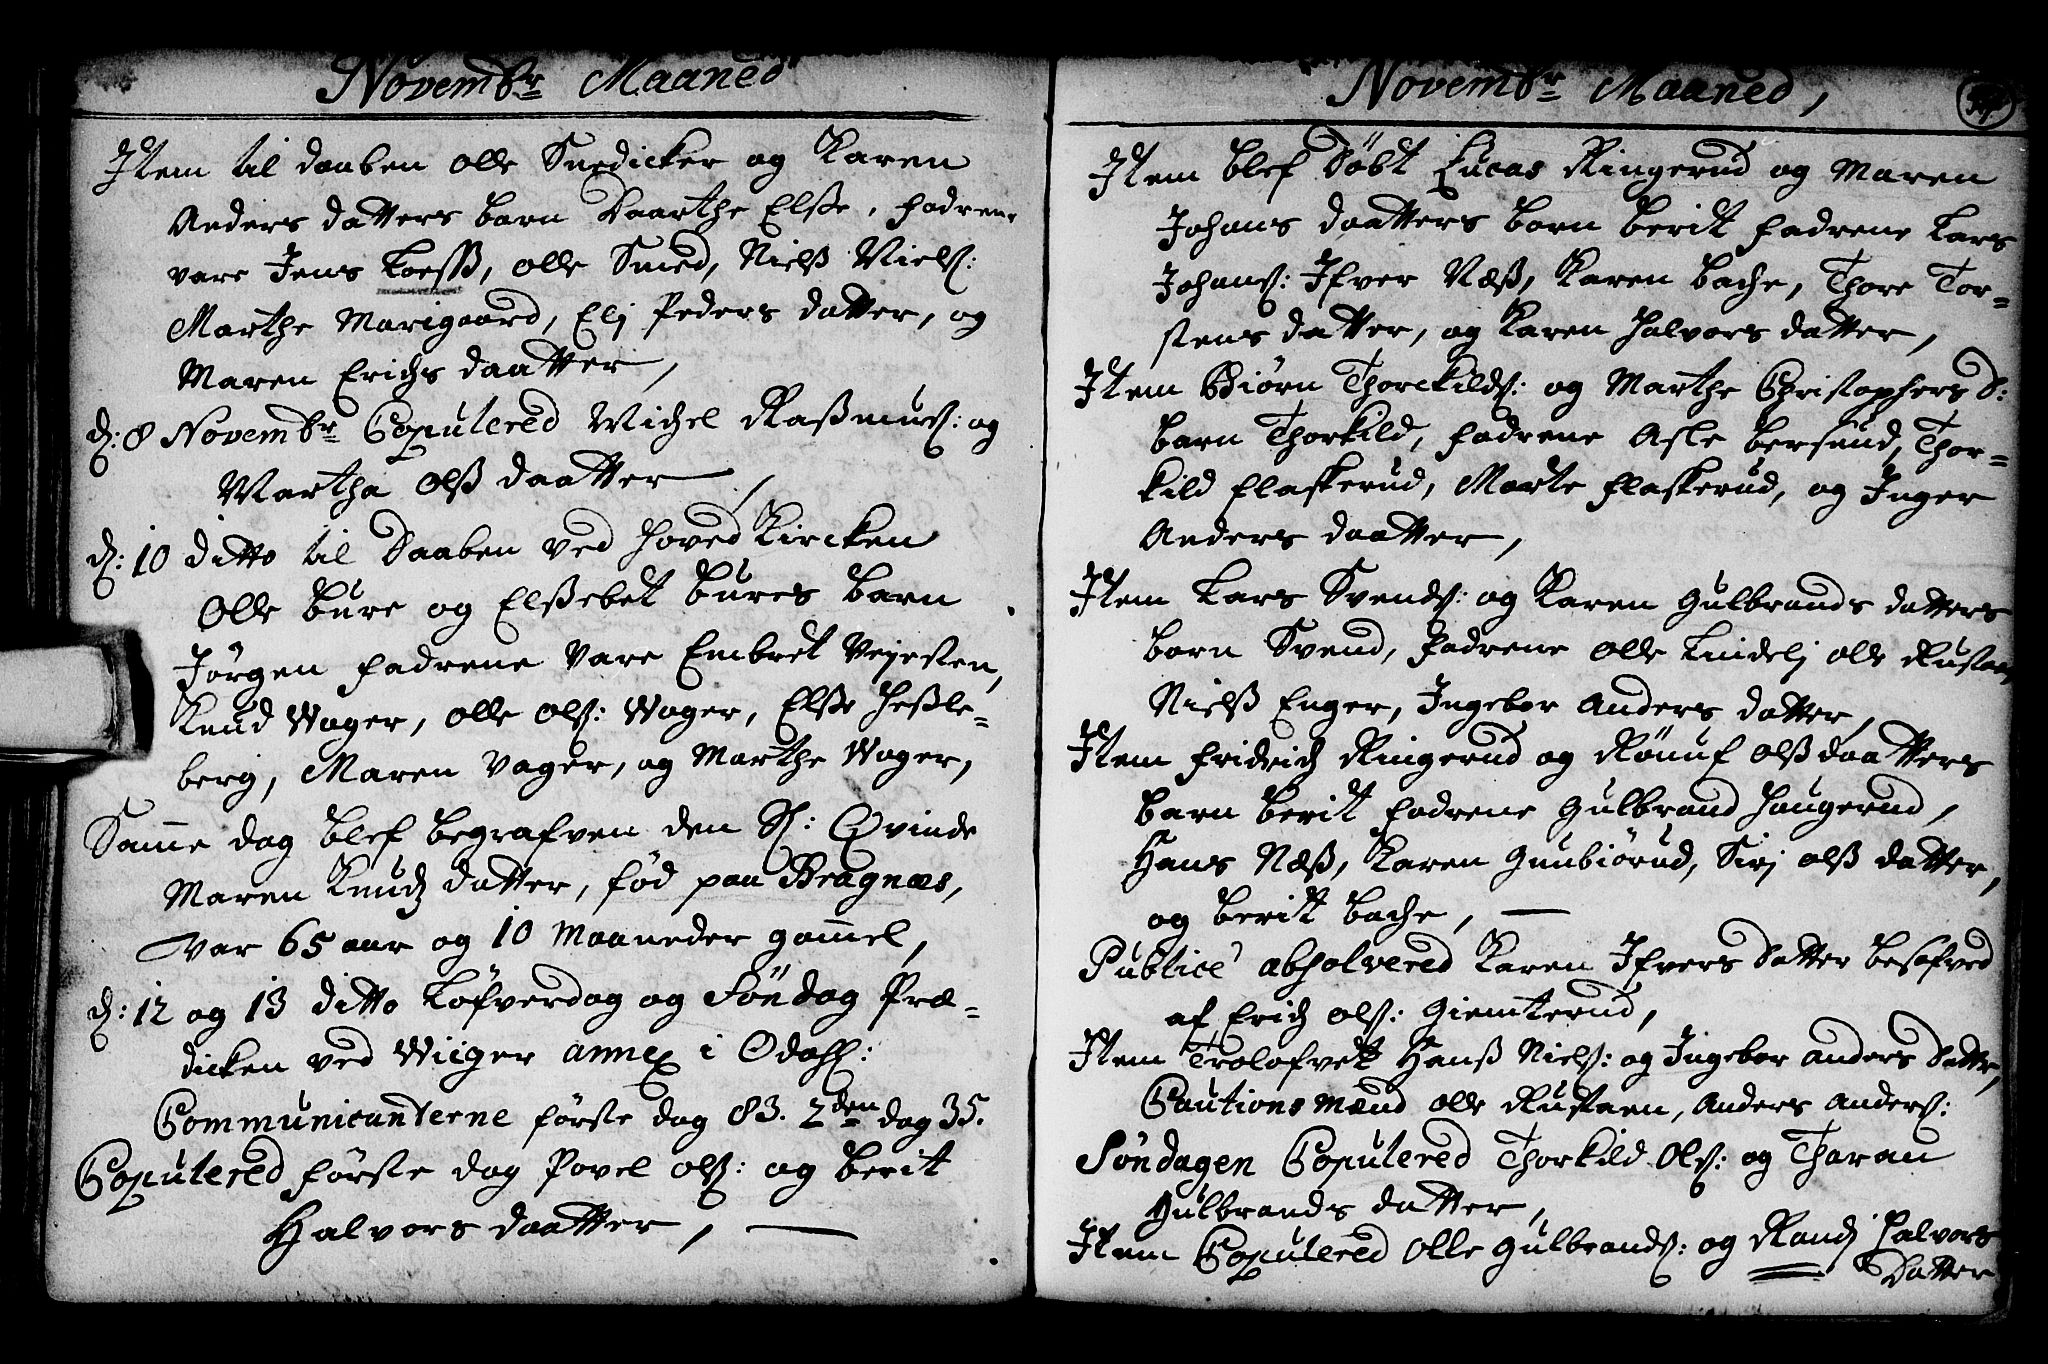 Novembr Maaned
Item til daaben Olle Snedicker og Karen
Anders datters barn Daarthe Elsse, fadrene
vare Jens Koefss, Olle Smed, Nielss Niels:
Marthe Marigaard, Elj Peders datter, og
Maren Erichs daatter,
d: 8 Novembr Copulered Michel Rassmus: og
Martha Olss daatter,
d: 10 ditto til Daaben ved Hoved Kircken
Olle Bure og Elssebet Bures barn
Jörgen fadrene vare Embret Vejesten,
Knud Wager, Olle Ols: Wager, Elsse Hessle-
berg, Maren Vager, og Marthe Wager,
Samme dag blef begrafven den Sl: Qvinde
Maren Knudz datter, fød paa Bragnæs,
var 65 aar og 10 Maaneder gammel,
d: 12 og 13 ditto Löfverdag og Söndag Præ-
dicken ved Wiiger annex i Odahl:
Communicanterne förste dag 83. 2den dag 35.
Copulered förste dag Povel Ols: og Berit
Halvors daatter,
Novembr Maaned,
Item blef Döbt Lucas Ringerud og Maren
Johans daatters barn Berit fadrene Lars
Johans: Ifver Næss, Karen Bache, Thore Tor-
stens datter, og Karen Halvors datter,
Item Biørn Thorckilds: og Marthe Christophers D:
barn Thorkild, fadrene Asle Bersund, Thor-
kild Flaskerud, Marte Flaskerud, og Inger
Anders daatter,
Item Lars Svends: og Karen Gulbrands datters
barn Svend, fadrene Olle Lindelj Olle Rustaen,
Nielss Enger, Ingebor Anders datter,
Item Fridrich Ringerud og Rönnf Olss daatters
barn Berit fadrene Gulbrand Haugerud,
Hans Næss, Karen Gunbiörud, Sirj Olss datter,
og Berit Bache,
Publicè absolvered Karen Ifvers Datter besofved
af Erich Ols: Giemterud,
Item Trolofvet Hanss Niels: og Ingebor Anders Datter,
Cautions mænd Olle Rustaen, Anders Anders:
Söndagen Copulered Thorkild Ols: og Tharan
Gulbrands datter,
Item Copulered Olle Gulbrands: og Randj Halvors
Datter